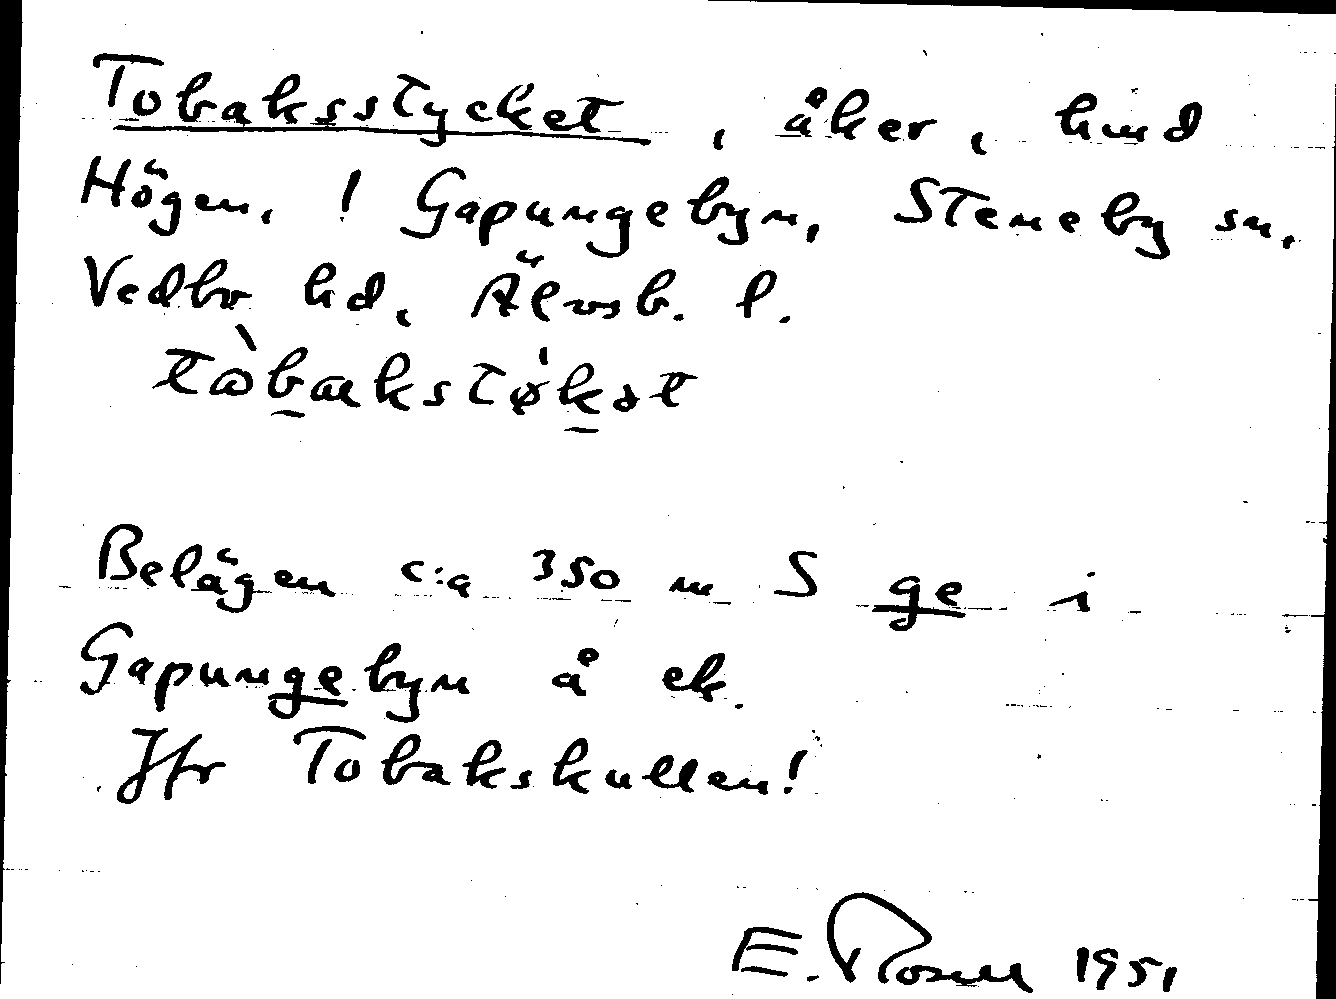 Tobaksstycket, åker, hmd
Högen, ! Gapungebyn, Steneby sn,
Vedbo hd, Älvsb. l.
Belägen c:a 350 m S ge i
Gapungebyn å ek.
Jfr Tobakskullen!
E. Rosell 1951